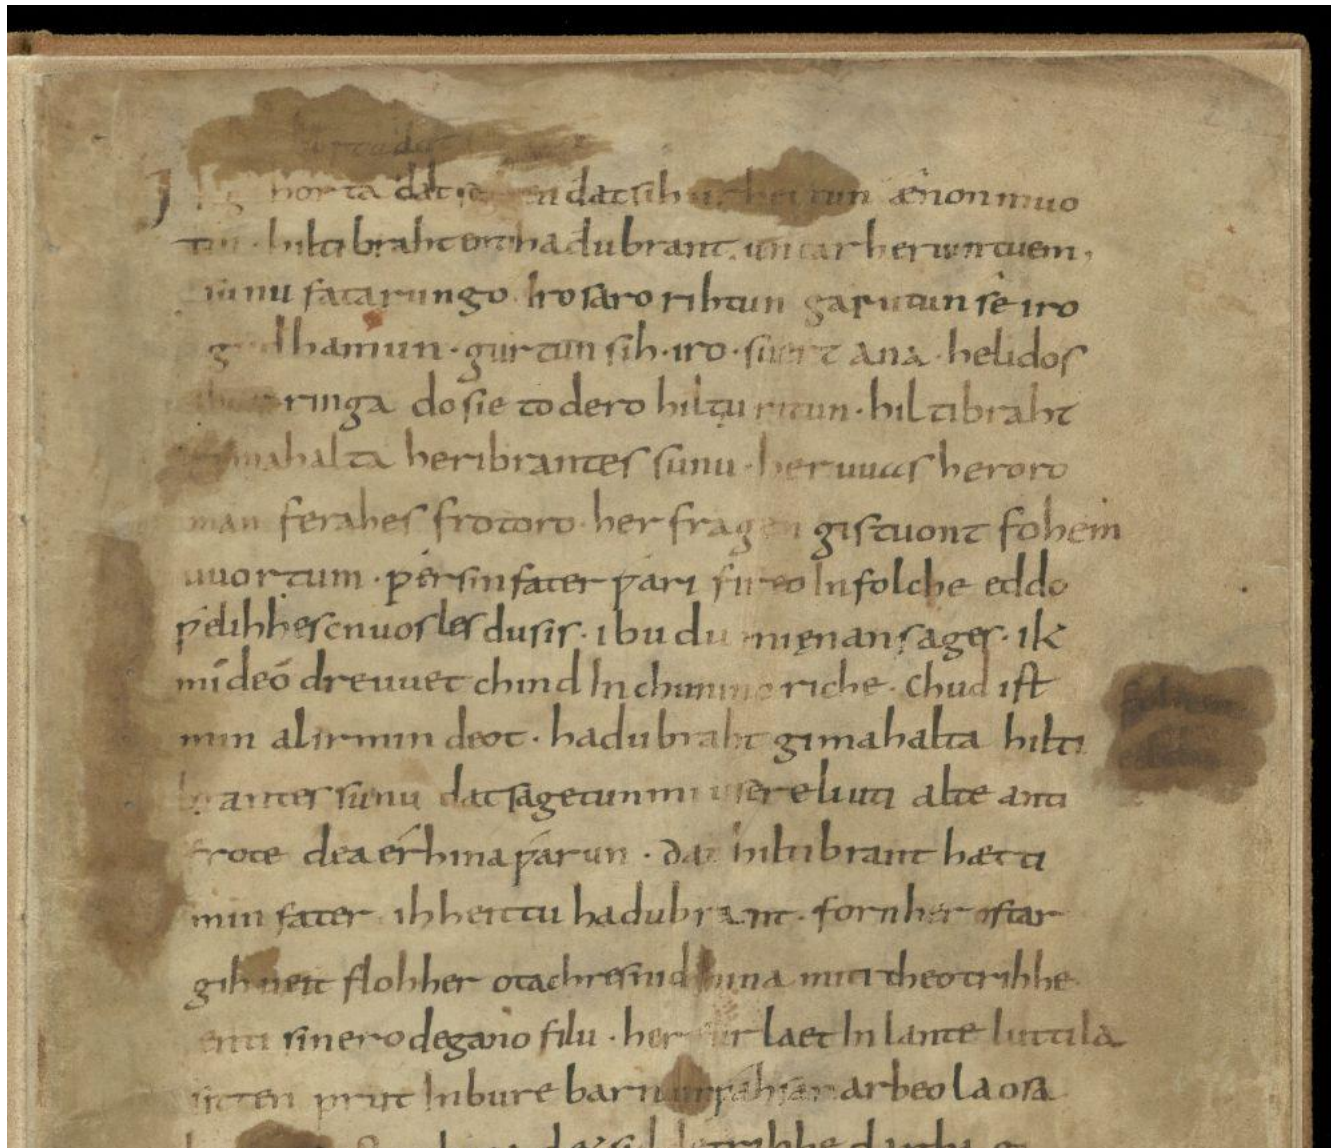 Ik gihorta dat seggen dat sih urhettun ænon muo
tin · hiltibraht enti hadubrant · untar heriun tuem ·
sunu fatarungo · iro saro rihtun garutun sê iro
gudhamun · gurtun sih · iro · suert ana · helidos
ringa do sie to dero hiltu ritun · hiltibraht
gimahalta heribrantes sunu · her uuas heroro
man ferahes frotoro · her fragen gistuont fohem
uuortum · ƿer sin fater ƿari fireo In folche eddo
ƿelihhes cnuosles du sis · ibu du mi ęnan sages · ik
mi deo dre uuet chind In chunincriche · Chud ist
min al irmin deot · hadubraht gimahalta hilti
brantes sunu dat sagetun mi usere liuti alte anti
frote dea érhina ƿarun · dat hiltibrant hætti
min fater · ih heittu hadubrant · forn her ostar
gihueit floh her otachres nid hina miti theotrihhe
enti sinero degano filu · her furlaet In lante luttila
sitten prut In bure barn unƿahsan arbeo laosa